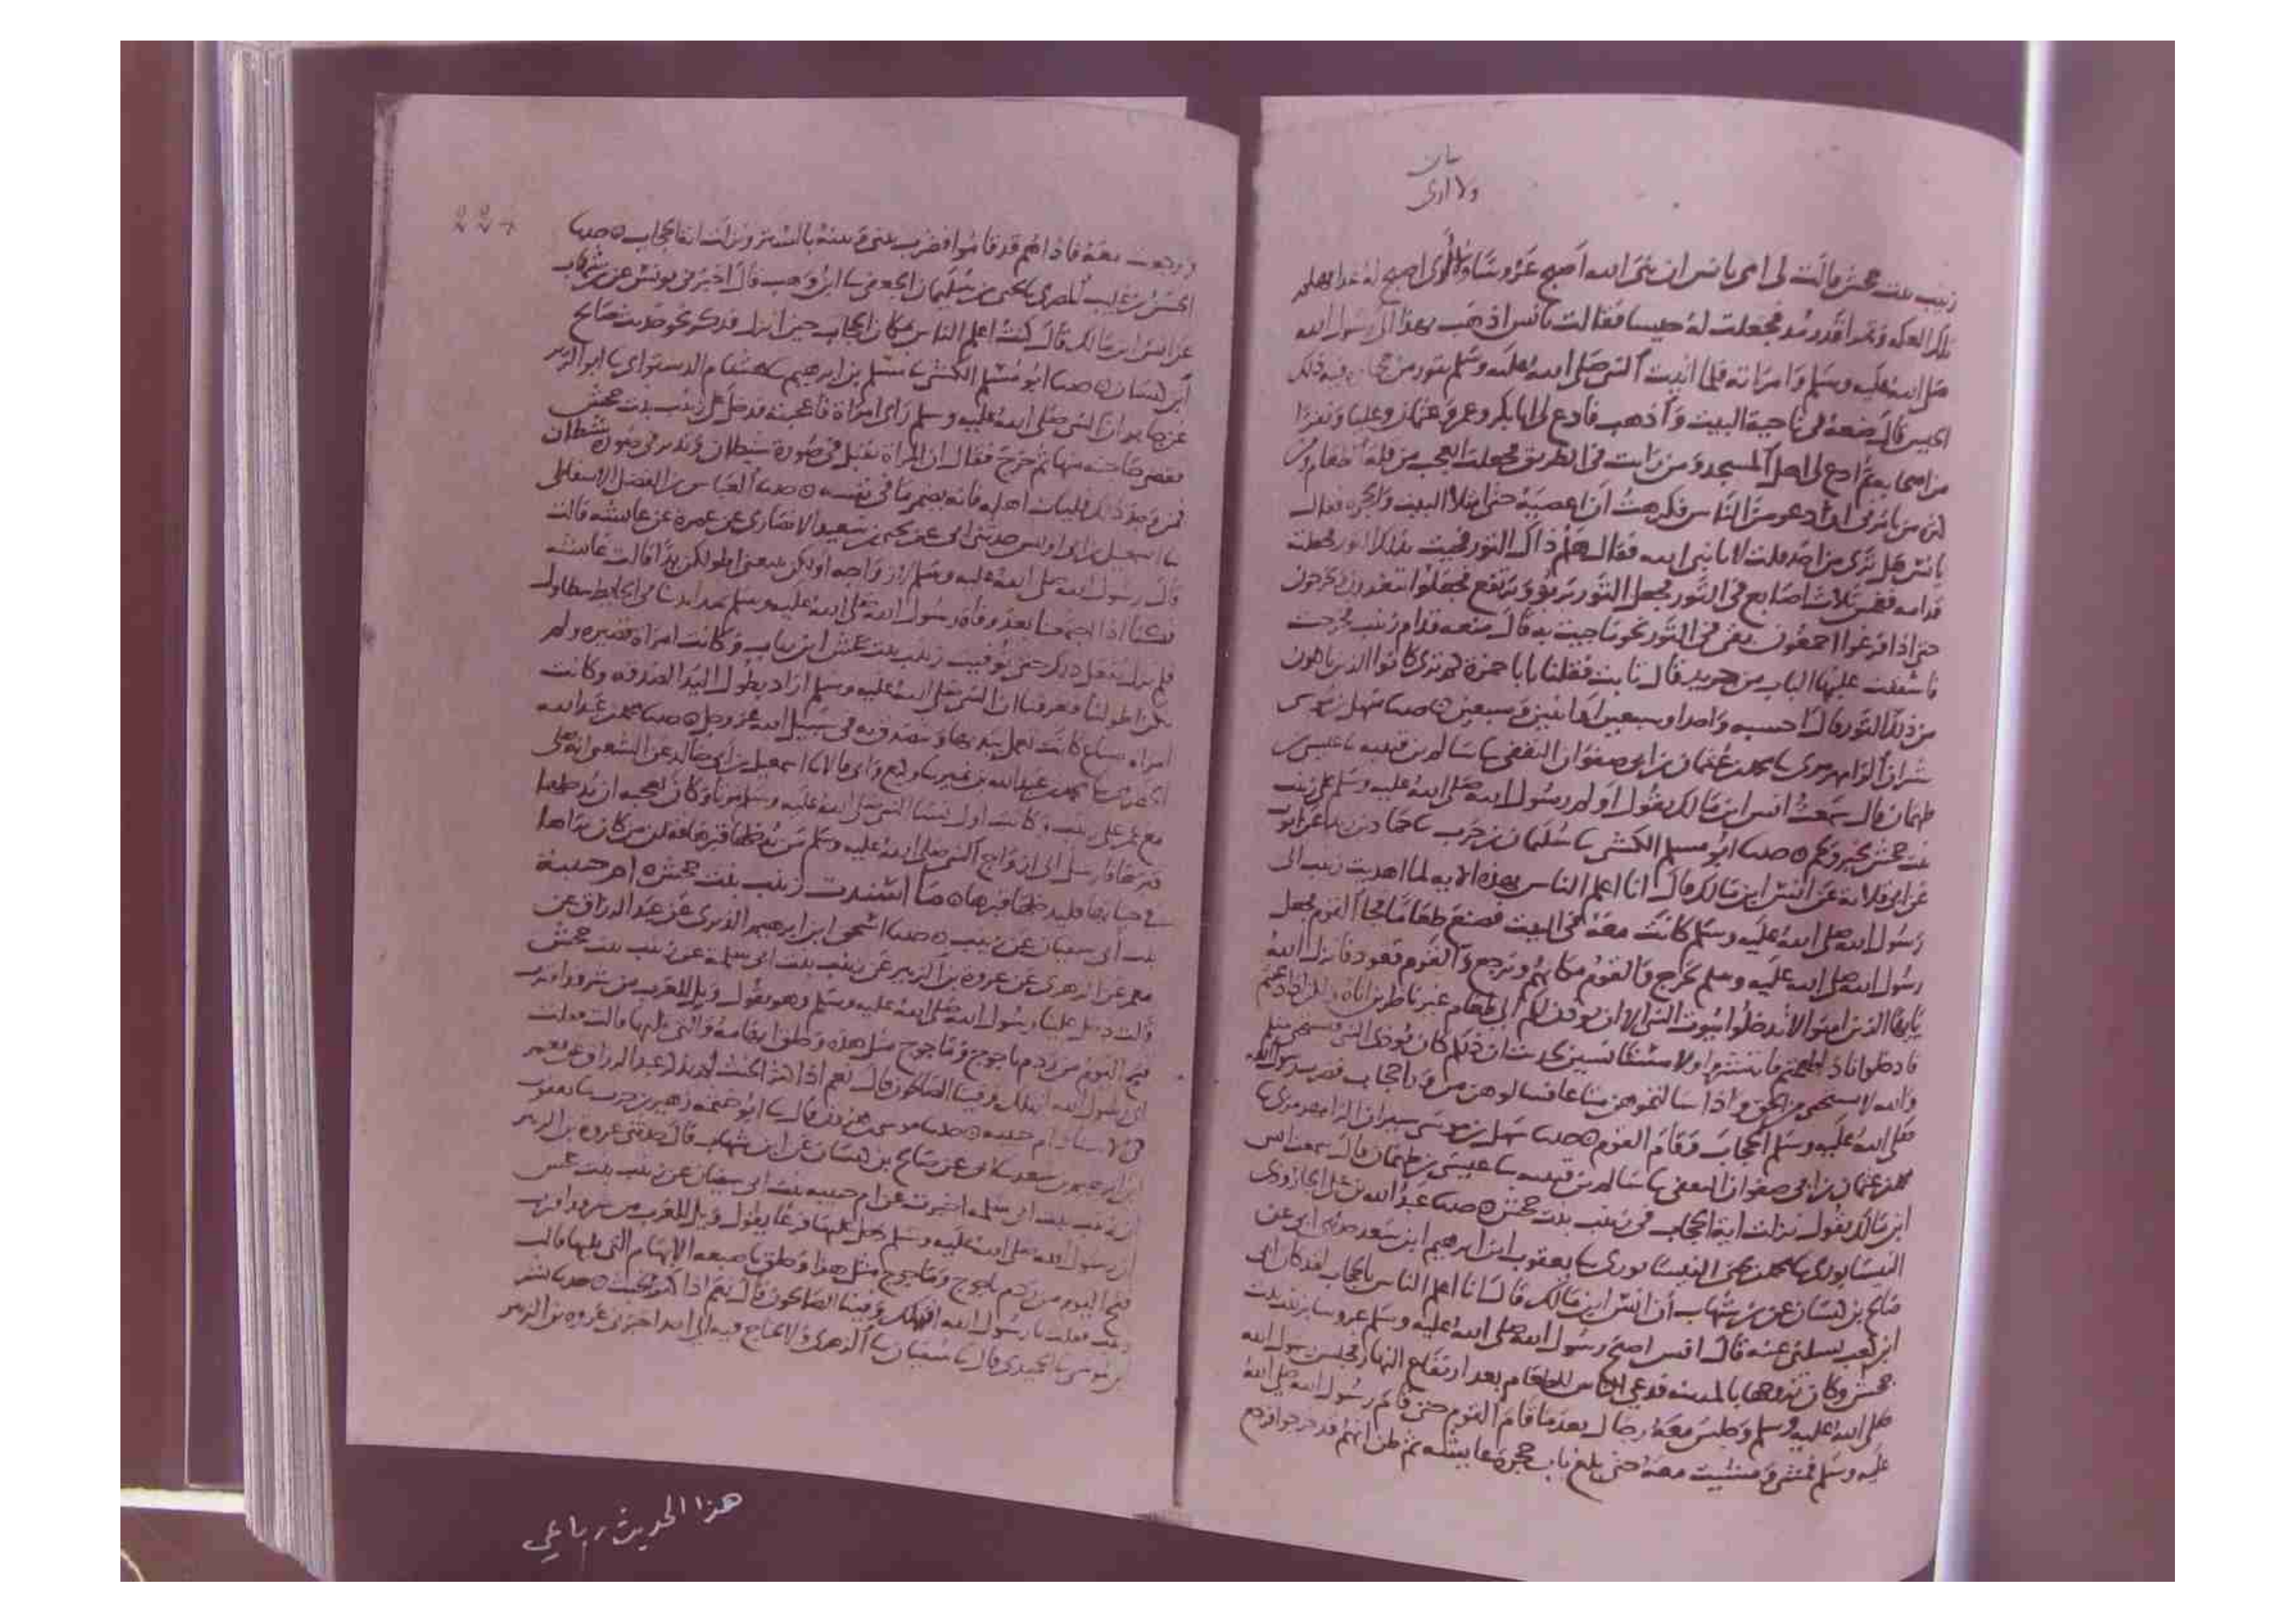 ولا ارى
زينب بنت جحش قالت لى امى يا انس ان نبى الله اصبح عروسا ولا ارى اصبح له غدا فهلم
تلك العكة وتمرا قدر مد فجعلت له حيسا فقالت يا انس اذهب بهذا الى رسول الله
صلى الله عليه وسلم وامراته فلما اتيت النبى صلى الله عليه وسلم بتور من حجارة فيه ذلك
الحيس قال ضعه فى ناحية البيت واذهب فادع لى ابا بكر وعمر وعثمان وعليا ونفرا
من اصحابه ثم ادع لى اهل المسجد ومن رايت فى الطريق فجعلت اتعجب من قلة الطعام ومن
كثرة من يامرنى ان ادعو من الناس فكرهت ان اعصيه حتى امتلا البيت والحجرة فقال
يا انس هل ترى من احد فقلت لا يا نبى الله فقال هلم ذاك التور فجيت بذلك التور فجعلت
قدامه فغمس ثلاث اصابع فى التور فجعل التور يربو ويرتفع فجعلوا يتغدون ويخرجون
حتى اذا فرغوا اجمعون بقى فى التور نحو ما جيت به قال ضعه قدام زينب فخرجت
فاسفقت عليها الباب من جريد قال ثابت فقلنا يا با حمزة كم ترى كانوا الذين ياكلون
من ذلك التور قال احسبه واحدا وسبعين او اثنين وسبعين ه حدثنا سهل بن موسى
شيران الرامهرمزى نا محمد بن عثمان بن ابى صفوان الثقفى نا سالم بن قتيبه نا عيسى بن
طهمان قال سمعت انس ابن مالك يقول اولم رسول الله صلى الله عليه وسلم على زينب
بنت جحش بخبز ولحم ه حدثنا ابو مسلم الكشى نا سليمان بن حرب نا حماد بن زيد عن ايوب
عن ابى قلابة عن انس ابن مالك قال انا اعلم الناس بهذه الاية لما اهديت زينب الى
رسول الله صلى الله عليه وسلم كانت معه فى البيت فصنع طعاما فجا القوم فجعل
رسول الله صلى الله عليه وسلم يخرج والقوم مكانهم ويرجع والقوم قعود فانزل الله
يا ايها الذين امنوا لا تدخلوا بيوت النبى الا ان يوذن لكم الى طعام غير ناظرين اناه ولكن اذا دعيتم
فادخلوا فاذا طعمتم فانتشروا ولا مستانسين لحديث ان ذلكم كان يوذى النبى فيستحى منكم
والله لا يستحى من الحق واذا سالتموهن متاعا فسالوهن من ورا حجاب فضرب رسول الله
صلى الله عليه وسلم الحجاب وقام القوم ه حدثنا سهل بن موسى شيران الرامهرمزى نا
محمد بن عثمان بن ابى صفوان الثقفى نا سالم بن قتيبه نا عيسى بن طهمان قال سمعت انس
ابن مالك يقول نزلت اية الحجاب فى زينب بنت جحش ه حدثنا عبد الله بن على الجارودى
النيسابورى نا محمد بن يحيى النيسابورى نا يعقوب ابن ابرهيم ابن سعد حدثنى ابى عن
صالح بن كيسان عن بن شهاب ان انس ابن مالك قال انا اعلم الناس بالحجاب لقد كان ابى
ابن كعب يسالنى عنه قال انس اصبح رسول الله صلى الله عليه وسلم عروسا بزينب بنت
جحش وكان تزوجها بالمدينة فدعى الناس للطعام بعد ارتفاع النهار فجلس رسول الله
صلى الله عليه وسلم وجلس معه رجال بعد ما قام القوم حتى قام رسول الله صلى الله
عليه وسلم فمشى ومشيت معه حتى بلغ باب حجرة عايشه ثم ظن انهم قد خرجوا فرجع
ورجعت معه فاذا هم قد قاموا فضرب بينى وبينه بالستر ونزلت اية الحجاب ه حدثنا
الحسن بن غليب المصرى نا يحيى بن سليمان الجعفى نا ابن وهب قال اخبرنى يونس عن بن شهاب
عن انس ابن مالك قال كنت اعلم الناس بمكان الحجاب حين انزل فذكر نحو حديث صالح
ابن كيسان ه حدثنا ابو مسلم الكشى نا مسلم بن ابرهيم نا هشام الدستواى نا ابو الزبير
عن جابر ان النبى صلى الله عليه وسلم راى امراة فاعجبته فدخل على زينب بنت جحش
فقضى حاجته منها ثم خرج فقال ان المراة تقبل فى صورة شيطان وتدبر فى صورة شيطان
فمن وجد ذلك فليات اهله فانه يضمر ما فى نفسه ه حدثنا العباس بن الفضل الاسفاطى
نا اسمعيل بن ابى اويس حدثنى ابى عن يحيى بن سعيد الانصارى عن عمرة عن عايشه قالت
قال رسول الله صلى الله عليه وسلم لازواجه اولكن يتبعنى اطولكن يدا قالت عايشه
فكنا اذا اجتمعنا بعد وفاة رسول الله صلى الله عليه وسلم نمد ايدينا فى الحايط نتطاول
فلم نزل نفعل ذلك حتى توفيت زينب بنت جحش ابن رياب وكانت امراة قصيره ولم
تكن اطولنا فعرفنا ان النبى صلى الله عليه وسلم اراد بطول اليد الصدقه وكانت
امراة صناع كانت تعمل بيديها وتتصدق به فى سبيل الله عز وجل ه حدثنا محمد بن عبد الله
الحضرمى نا محمد بن عبد الله بن نمير نا وكيع وابى قالا نا اسمعيل بن ابى خالد عن الشعبى انه صلى
مع عمر على زينب وكانت اول نسا النبى صلى الله عليه وسلم موتا وكان يعجبه ان يدخلها
قبرها فارسل الى ازواج النبى صلى الله عليه وسلم من يدخلها قبرها فقلن من كان يراها
فى حياتها فليدخلها قبرها ه ما اسندت زينب بنت جحش ه ام حبيبة
بنت ابى سفيان عن زينب ه حدثنا اسحق ابن ابرهيم الدبرى عن عبد الرزاق عن
معمر عن الزهرى عن عروه بن الزبير عن زينب بنت ابى سلمة عن زينب بنت جحش
قالت دخل علينا رسول الله صلى الله عليه وسلم وهو يقول ويل للعرب من شر قد اقترب
فتح اليوم من ردم ياجوج وماجوج مثل هذه وحلق ابهامه والتى تليها قالت فقلت
اى رسول الله انهلك وفينا الصالحون قال نعم اذا كثر الخبث لم يذكر عبد الرزاق عن معمر
فى الاسناد ام حبيبه ه حدثنا موسى بن هرون قال نا ابو خيثمه زهير بن حرب نا يعقوب
ابن ابرهيم بن سعد نا ابى عن صالح بن كيسان عن ابن شهاب قال حدثنى عروه بن الزبير
ان زينب بنت ابى سلمه اخبرته عن ام حبيبه بنت ابى سفيان عن زينب بنت جحش
ان رسول الله صلى الله عليه وسلم دخل عليها فزعا يقول ويل للعرب من شر قد اقترب
فتح اليوم من ردم ياجوج وماجوج مثل هذا وحلق باصبعه الابهام التى يليها قالت
زينب فقلت يا رسول الله انهلك وفينا الصالحون قال نعم اذا كثر الخبث ه حدثنا بشر
بن موسى نا الحميدى قال نا سفيان نا الزهرى ولا احتاج فيه الى احد اخبرنى عروه بن الزبير
هذا الحديث رباعي